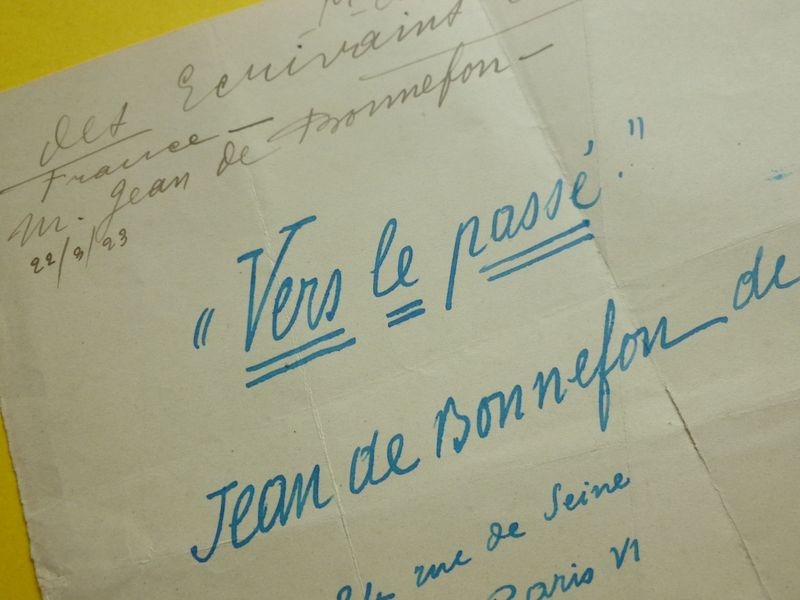 des Ecrivains
France
M. Jean de Bonnefon
22/3/23
"Vers le passé."
Jean de Bonnefon de
rue de Seine
Paris VI